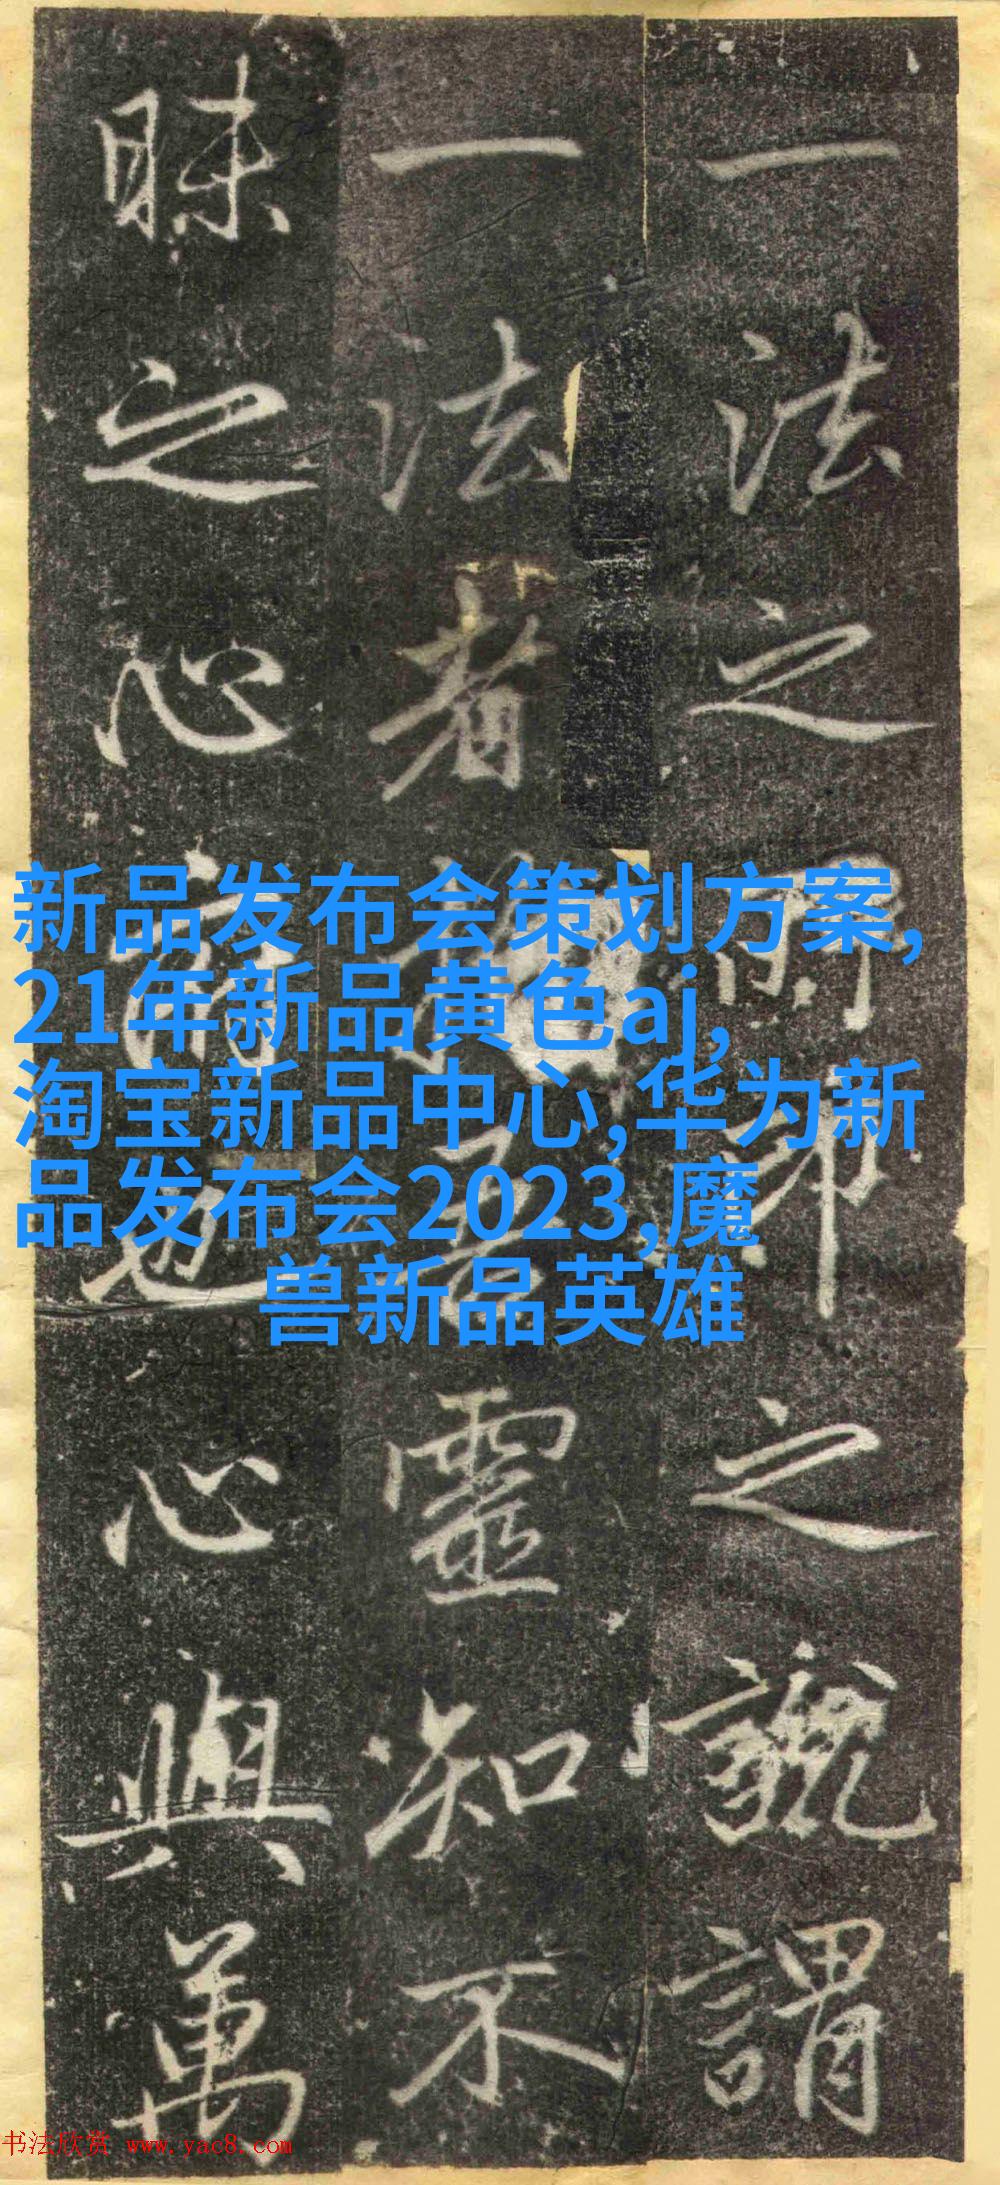 一法之之說謂
一法者靈知不
昧之心也心與萬
新品发布会策划方案,
21年新品黄色aj,
淘宝新品中心,华为新
品发布会2023,魔
兽新品英雄
书法欣赏 www.yac8.com